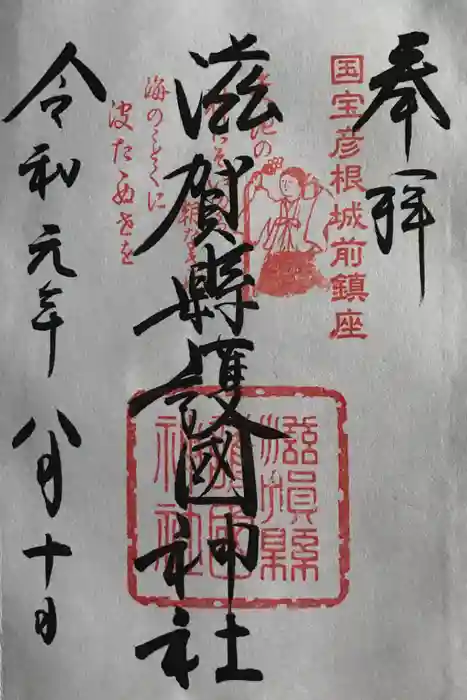 奉拝
国宝彦根城前鎮座
滋賀縣護國神社
海のことくに
波たゝぬせを
滋賀縣
護國
神社
令和元年八月十日